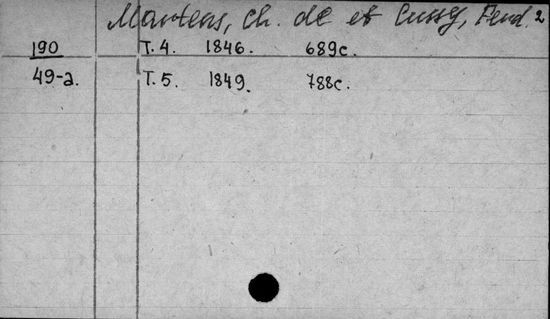 Martens, Ch. de et Cussy, Ferd. 2
190 T. 4. 1846. 689c.
49-a. T. 5. 1849. 788c.